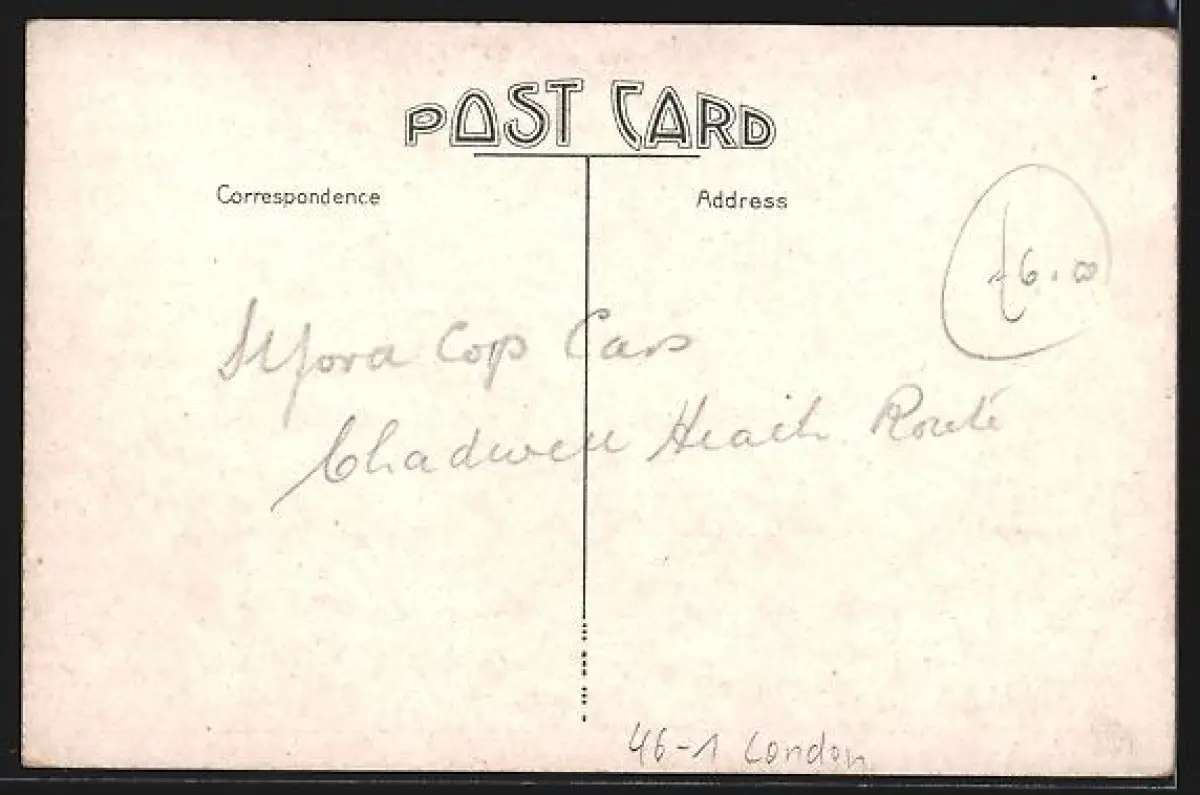 POST CARD
Correspondence
Address
£6.00
Ilford Cop Cars
Chadwell Heath Route
46-1 London